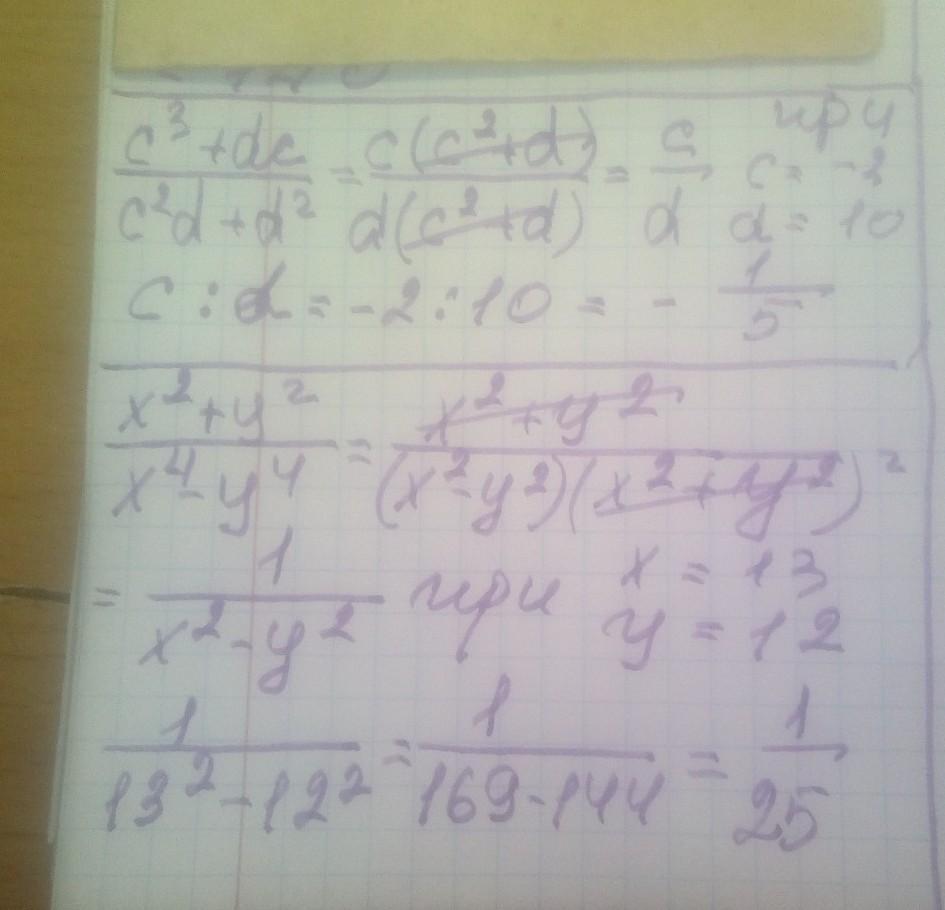 c³+dc/c²d+d² = c(c²+d)/d(c²+d) = c/d при c = -2 d = 10
c : d = -2 : 10 = - 1/5
x²+y²/x⁴-y⁴ = x²+y²/(x²-y²)(x²+y²) =
= 1/x²-y² при x = 13 y = 12
1/13²-12² = 1/169-144 = 1/25